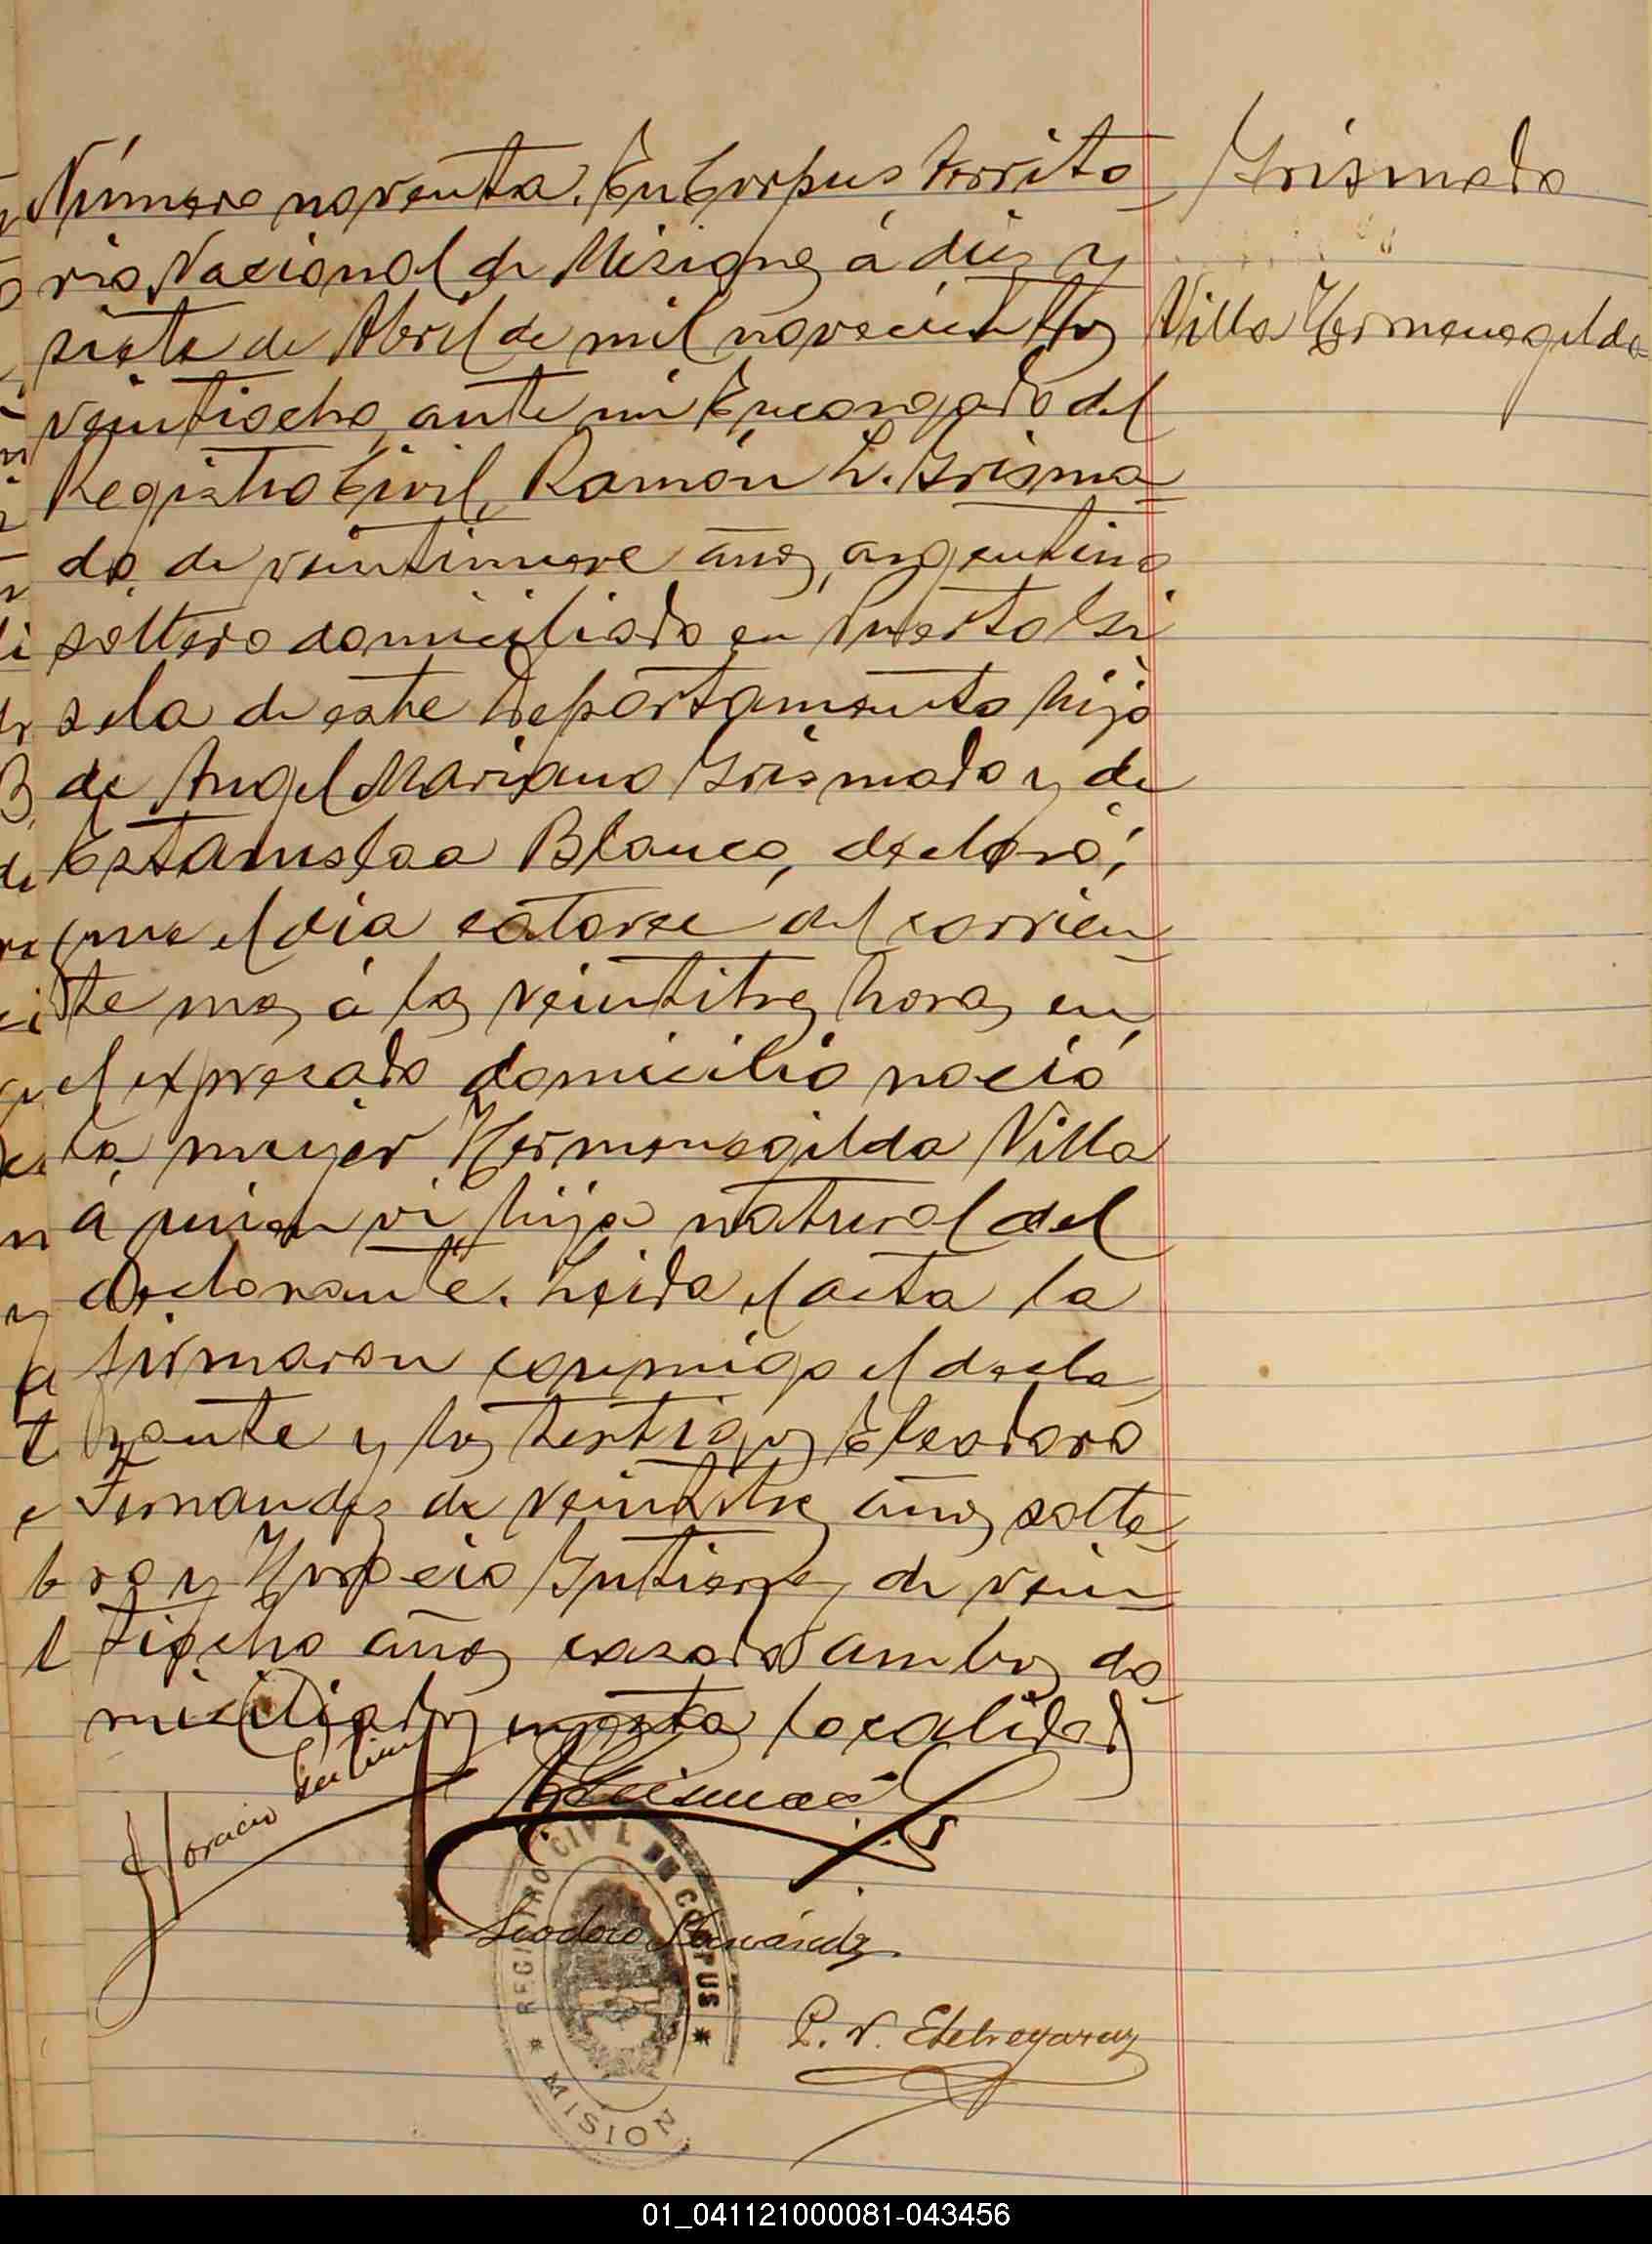 Número noventa. En Corpus Territo-
rio Nacional de Misiones á diez y
siete de Abril de mil novecientos
veintiocho, ante mi Encargado del
Registro Civil, Ramón L. Grisma-
do, de veintinueve años, argentino
soltero domiciliado en Puerto Gi-
sela de este Departamento hijo
de Angel Mariano Grismado y de
Estanislaa Blanco, declaró;
que el día catorce del corrien-
te mes á las veintitres horas en
el expresado domicilio nació
la mujer Hermenegilda Villa
á quien vi hija natural del
declarante. Leída el acta la
firmaron conmigo el decla-
rante y los testigos Eleodoro
Fernandez de veintitres años solte-
ro y Horacio Gutierrez de vein-
tiocho años casado ambos do-
miciliados en esta localidad
Grismado
Villa Hermenegilda
Horacio
REGISTRO CIVIL DE CORPUS
MISION
P. N. Etchegaray
01_041121000081-043456